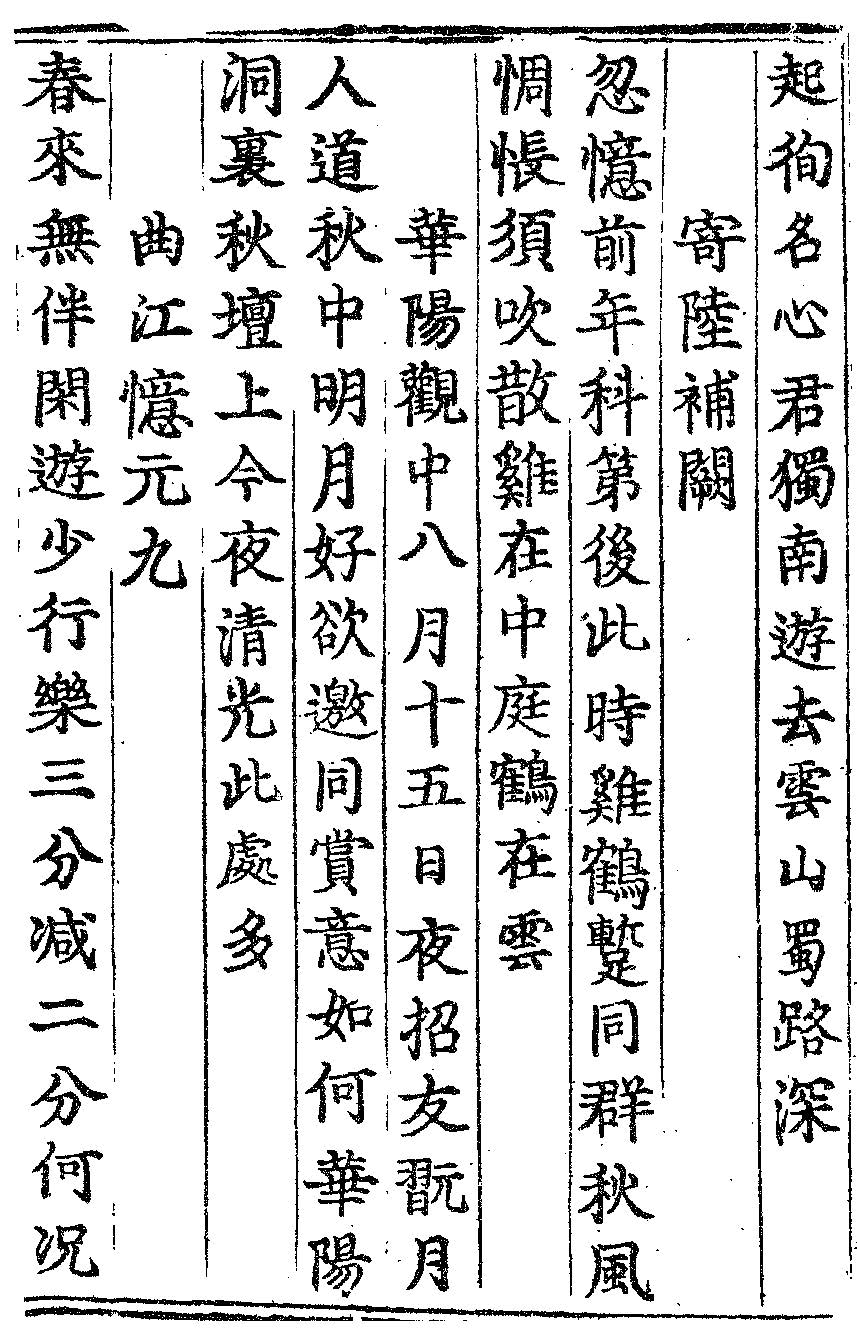 起徇名心君獨南遊去雲山蜀路深
寄陸補闕
忽憶前年科第後此時雞鶴蹔同群秋風
惆悵須吹散雞在中庭鶴在雲
華陽觀中八月十五日夜招友翫月
人道秋中明月好欲邀同賞意如何華陽
洞裏秋壇上今夜清光此處多
曲江憶元九
春來無伴閑遊少行樂三分减二分何况